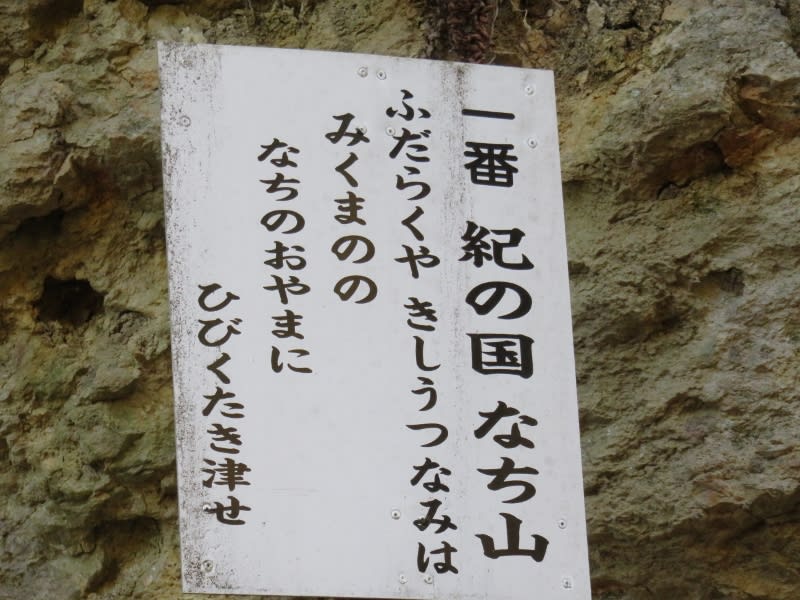 一番 紀の国 なち山
ふだらくや きしうつなみは
みくまのの
なちのおやまに
ひびくたき津せ